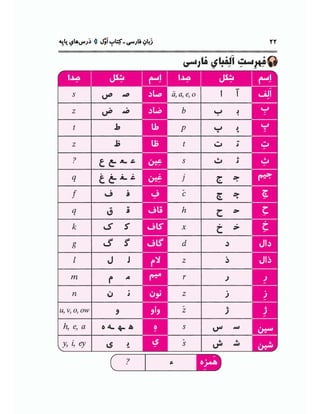 ۲۲ زَبانِ فارسی ـ کِتابِ اَوَّل ◊ دَرس‌هایِ پایِه
فِهرِستِ اَلِفبایِ فارسی
اِسم شِکل صِدا اِسم شِکل صِدا
اَلِف آ ا ā, a, e, o صاد صـ ص s
بِ بـ ب b ضاد ضـ ض z
پِ پـ پ p طا ط t
تِ تـ ت t ظا ظ z
ثِ ثـ ث s عِین عـ ـعـ ـع ع ?
جیم جـ ج j غِین غـ ـغـ ـغ غ q
چِ چـ چ č فِ فـ ف f
حِ حـ ح h قاف قـ ق q
خِ خـ خ x کاف کـ ک k
دال د d گاف گـ گ g
ذال ذ z لام لـ ل l
رِ ر r میم مـ م m
زِ ز z نون نـ ن n
ژِ ژ ž واو و u, v, o, ow
سین سـ س s هِ هـ ـهـ ـه ه h, e, a
شین شـ ش š یِ یـ ی y, i, ey
هَمزِه ء ?